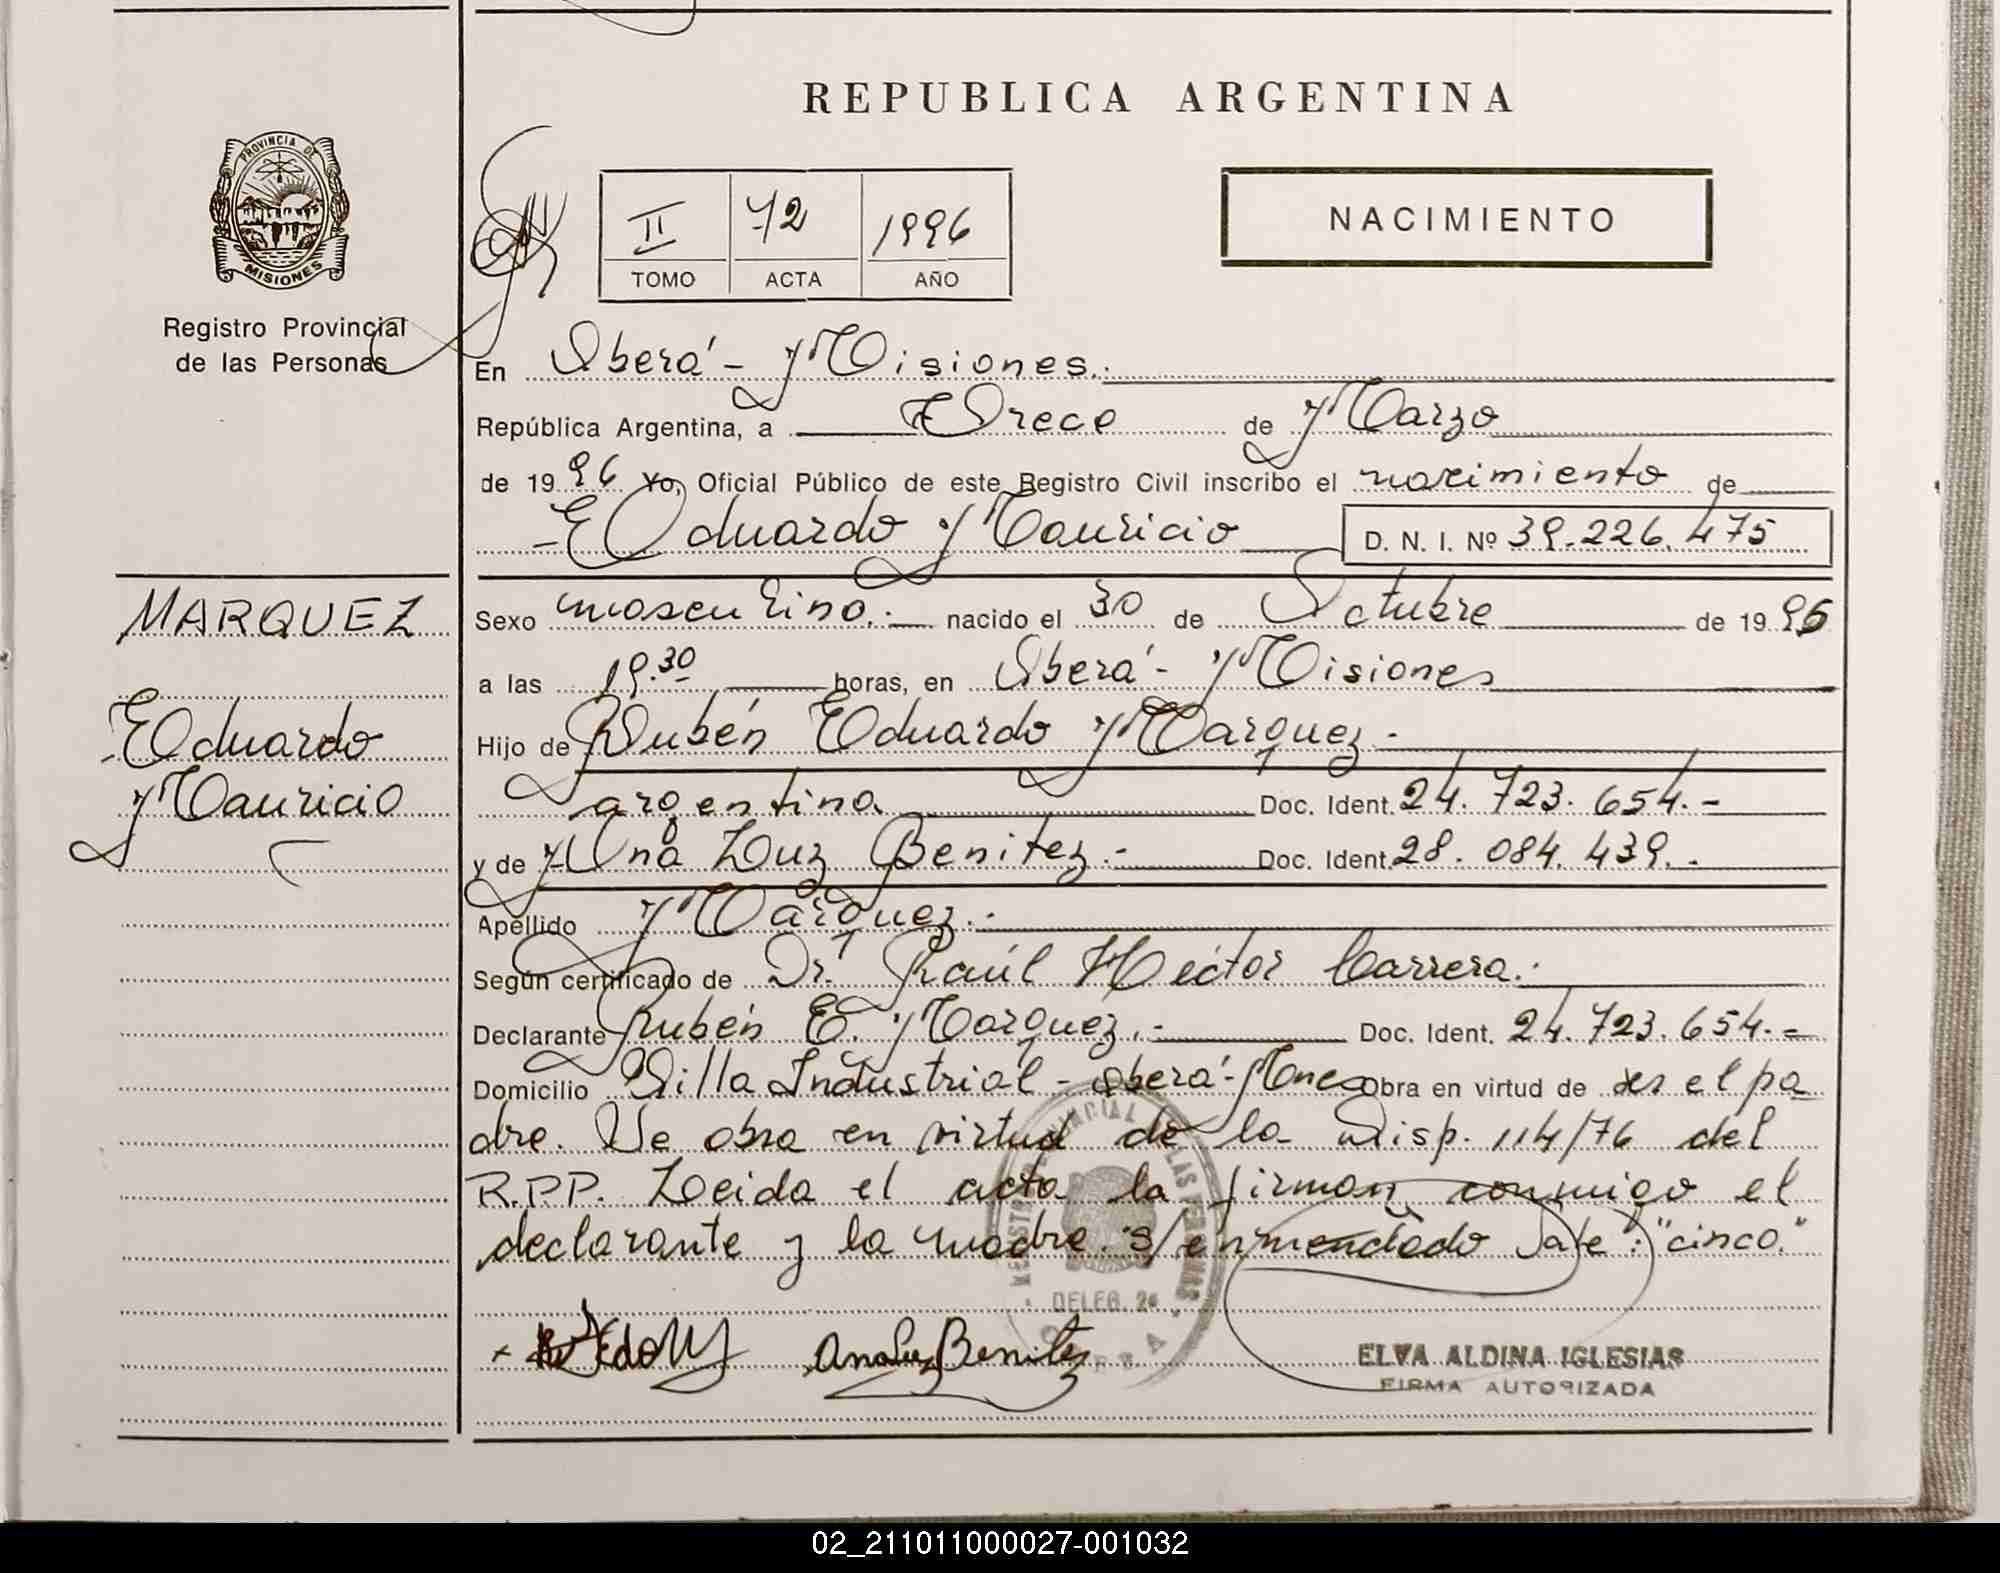 REPUBLICA ARGENTINA
PROVINCIA DE
MISIONES
Registro Provincial
de las Personas
II 72 1996
TOMO ACTA AÑO
NACIMIENTO
En Oberá - Misiones.-
República Argentina, a Trece de Marzo
de 1996 Yo, Oficial Público de este Registro Civil inscribo el nacimiento de
Eduardo Mauricio D. N. I. Nº 39.226.475
MARQUEZ
Eduardo
Mauricio
Sexo masculino.- nacido el 30 de Octubre de 1995
a las 19.30 horas, en Oberá - Misiones
Hijo de Rubén Eduardo Marquez -
argentina Doc. Ident. 24.723.654.-
y de Ana Luz Benitez.- Doc. Ident. 28.084.439.-
Apellido Marquez.-
Según certificado de Dr. Raúl Héctor Carrera.-
Declarante Rubén E. Marquez.- Doc. Ident. 24.723.654.-
Domicilio Villa Industrial - Oberá - Mnes Obra en virtud de ser el pa
dre. Se obra en virtud de la Disp. 114/76 del
R.P.P. Leida el acta la firman conmigo el
declarante y la madre. S/enmendado Vale: "cinco."
DELEG. 24
Ana Luz Benitez
ELVA ALDINA IGLESIAS
FIRMA AUTORIZADA
02_211011000027-001032